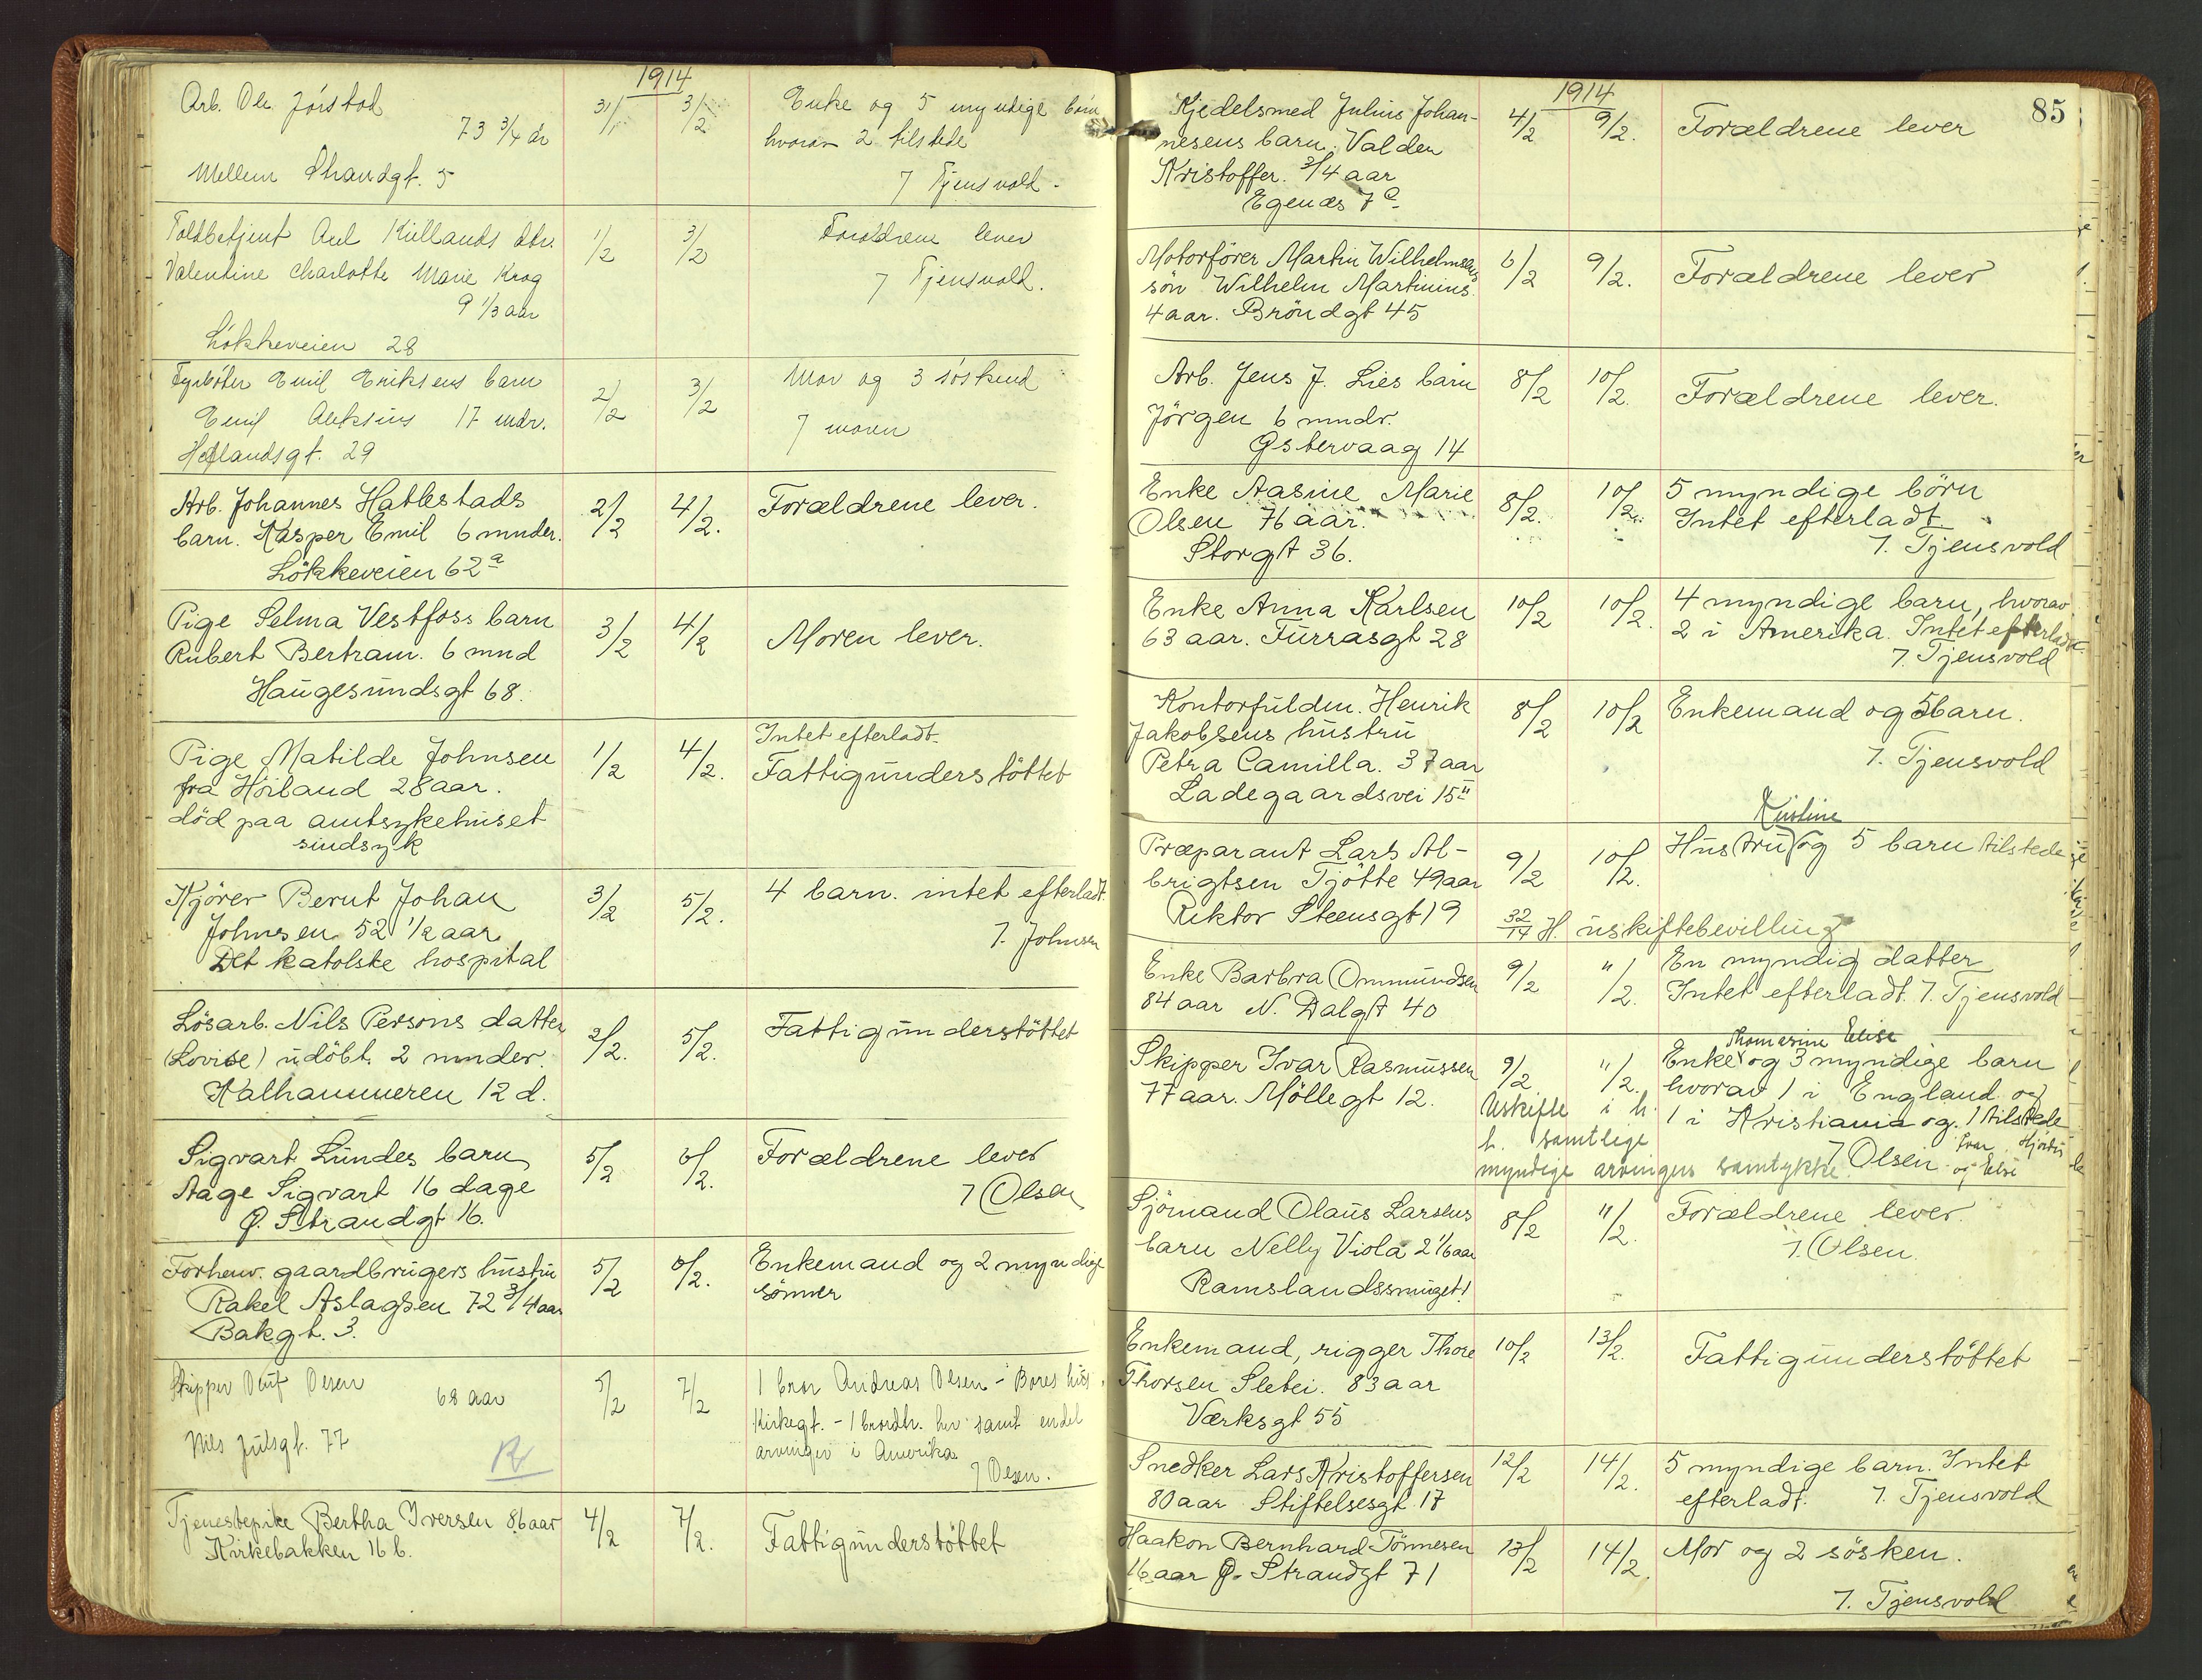 1914
Arb. Ole Jörstad 31/1 3/2 Enke og 5 myndige barn
73 3/4 år hvorav 2 tilstede
Mellem Strandgt. 5 7 Tjensvold.
Toldbetjent Axel Kiellands dtr. 1/2 3/2 Forældrene lever
Valentine Charlotte Marie Krog 7 Tjensvold.
9 1/3 aar
Lökkeveien 28
Fyrböter Emil Eriksens barn 2/2 3/2 Mor og 3 söskend
Emil 17 mdr. 7 moren
Hetlandsgt. 29
Arb. Johannes Hatlestads 2/2 4/2. Forældrene lever.
barn. Kasper Emil 6 mnder.
Lökkeveien 62a
Pige Selma Vestfoss barn 3/2 4/2 Moren lever.
Rubert Bertram. 6 mnd
Haugesundsgt 68.
Intet efterladt.
Pige Matilde Johnsen 1/2 4/2. Fattigunderstöttet
fra Höiland 28 aar.
död paa amtsykehuset
sindsyk
Kjörer Bernt Johan 3/2 5/2. 4 barn. intet efterladt.
Johnsen 52 1/2 aar. 7. Johnsen
Det katolske hospital
Lösarb. Nils Persons datter 2/2. 5/2. Fattigunderstöttet
(Lovise) udöbt. 2 mnder.
Kalhammeren 12 d.
Sigvart Lundes barn 5/2 6/2. Forældrene lever
Aage Sigvart 16 dage 7 Olsen
Ø. Strandgt 16.
Forhenv. gaardbrugers hustru 5/2 6/2. Enkemand og 2 myndige
Rakel Aslagsen 72 3/4 aar sönner
Bakgt. 3.
Skipper Oluf Olsen 5/2 7/2 1 bror Andreas Olsen - Bores hus
68 aar Kirkegt. - 1 brordtr. her samt endel
Nils Julsgt. 77 arvinger i Amerika
7 Olsen.
Tjenestepike Bertha Iversen 86 aar 4/2 7/2. Fattigunderstöttet
Kirkebakken 16 b.
1914 85
Kjedelsmed Julius Johan- 4/2 9/2. Forældrene lever
nesens barn. Valden
Kristoffer. 3/4 aar
Egenæs 7a
Motorförer Martin Wilhelmsens 6/2 9/2. Forældrene lever
sön Wilhelm Martinius.
4 aar. Bröndgt 45
Arb. Jens J. Lies barn 8/2 10/2. Forældrene lever.
Jörgen 6 mndr.
Østervaag 14
Enke Aasine Marie 8/2. 10/2. 5 myndige börn
Olsen 76 aar. Intet efterladt
Storgt 36. 7. Tjensvold
Enke Anna Karlsen 10/2 10/2. 4 myndige barn, hvorav
63 aar. Furrasgt 28 2 i Amerika. Intet efterladt.
7. Tjensvold
Kontorfuldm. Henrik 8/2 10/2 Enkemand og 5 barn.
Jakobsens hustru 7. Tjensvold
Petra Camilla. 37 aar
Ladegaardsvei 15II
Kristine
Præparant Lars Al- 9/2 10/2. Hustru og 5 barn tilstede
brigtsen Tjötte 49 aar
Rektor Steensgt 19 32/14 H. uskiftebevilling
Enke Barbra Ommundsen 9/2 11/2. En myndig datter
84 aar N. Dalgt 40 Intet efterladt. 7. Tjensvold
Thomasine Elise
Skipper Ivar Rasmussen 9/2 11/2. Enke og 3 myndige barn
77 aar. Möllegt 12. hvorav 1 i England og
Uskifte i h. 1 i Kristiania og 1 tilstede
t. samtlige Ivar, Hjördis
myndige arvingers samtykke. 7 Olsen. og Elsi
Sjömand Olaus Larsens 8/2 11/2. Forældrene lever.
barn Nelly Viola 2 1/6 aar 7. Olsen.
Ramslandssmuget 1
Enkemand, rigger Thore 10/2 13/2. Fattigunderstöttet
Thorsen Sletei. 83 aar
Værksgt 55
Snedker Lars Kristoffersen 12/2 14/2. 5 myndige barn. Intet
80 aar Stiftelsesgt. 17 efterladt. 7. Tjensvold
Haakon Bernhard Tönnesen 13/2 14/2. Mor og 2 sösken.
16 aar Ø. Strandgt 71 7. Tjensvold